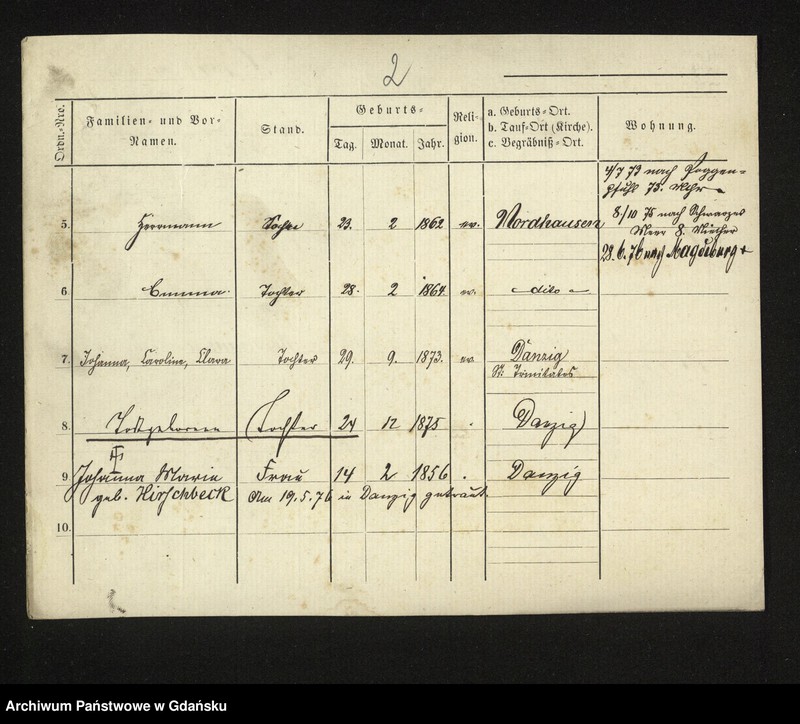 2
Ordn.-Nro.
Familien- und Vor-
Namen.
Stand.
Geburts-
Tag. Monat. Jahr.
Reli-
gion.
a. Geburts-Ort.
b. Tauf-Ort (Kirche).
c. Begräbniß-Ort.
Wohnung.
4/7 73 nach Poggen-
pfuhl 73.
8/10 75 nach Schwarzes
Meer 8.
28.6.76 nach Magdeburg
5. Herrmann Sohn 23. 2 1862 ev. Nordhausen
6. Emma Tochter 28. 2 1864 ev. dito
7. Johanna, Caroline, Clara Tochter 29. 9. 1873. ev. Danzig
St. Trinitatis
8. Todtgeborene Tochter 24 12 1875 Danzig
9 Johanna Marie Frau 14 2 1856 Danzig
geb. Hirschbeck Am 19.5.76 in Danzig getraut.
10.
Archiwum Państwowe w Gdańsku